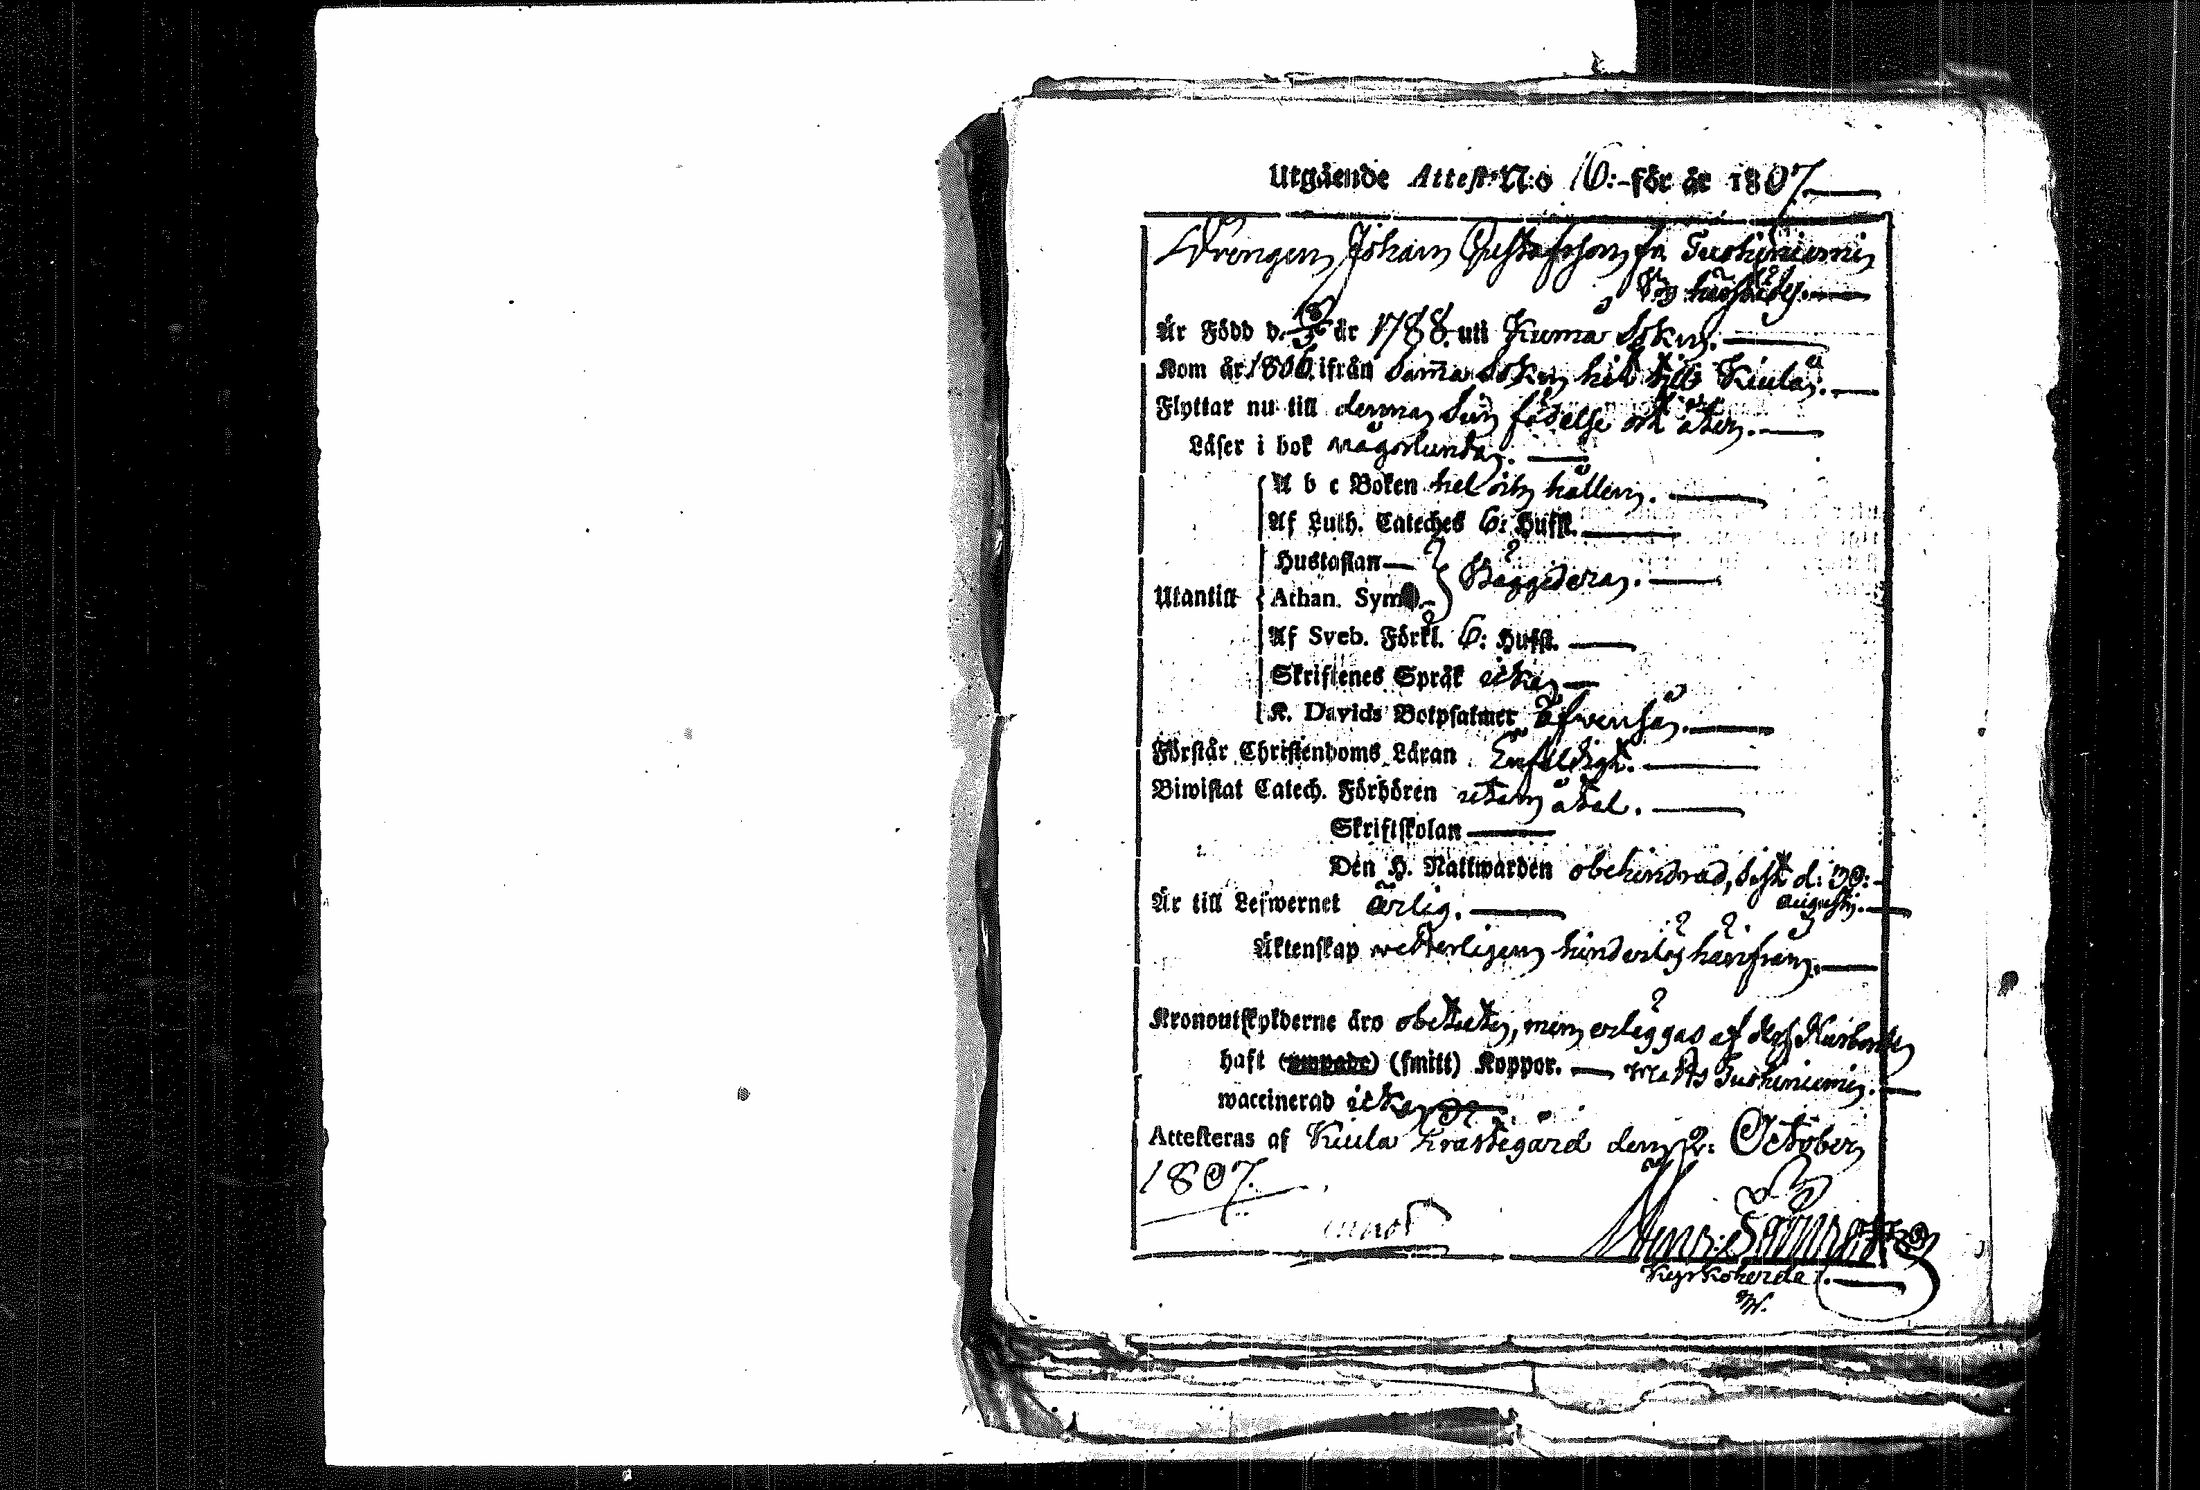 Utgående Attest N:o 16:- för år 1807
Drengen Johan Gustafsson fr Tuohiniemi
Är Född d. 18/3 år 1788. uti Kumo Sokn.
Kom år 1806. ifrån Sama Sokn hit till Kiula.
Flyttar nu till denna Sin födelse ort åter.
Läser i bok någorlunda.
A b c Boken hel och hållen.
Af Luth. Cateches 6: Hufst.
Hustaflan
Utantill Athan. Symb. Bäggedera.
Af Sveb. Förkl. 6: Hufst.
Skriftenes Språk icke
K. Davids Botpsalmer äfvenså.
Förstår Christendoms Läran Enfaldigt.
Biwistat Catech. Förhören utan åtal.
Skriftskolan
Den H. Nattwarden obehindrad, sist d: 30:
Augusti.
Är till Lefwernet ärlig.
Äktenskap vetterligen hinderlös härifrån.
Kronoutskylderne äro obetalte, men erläggas af dess Husbonde
haft (smitt) Koppor. Matts Tuohiniemi.
waccinerad icke
Attesteras af Kiula Prästegård den 2: October
1807.
Kyrkoherde